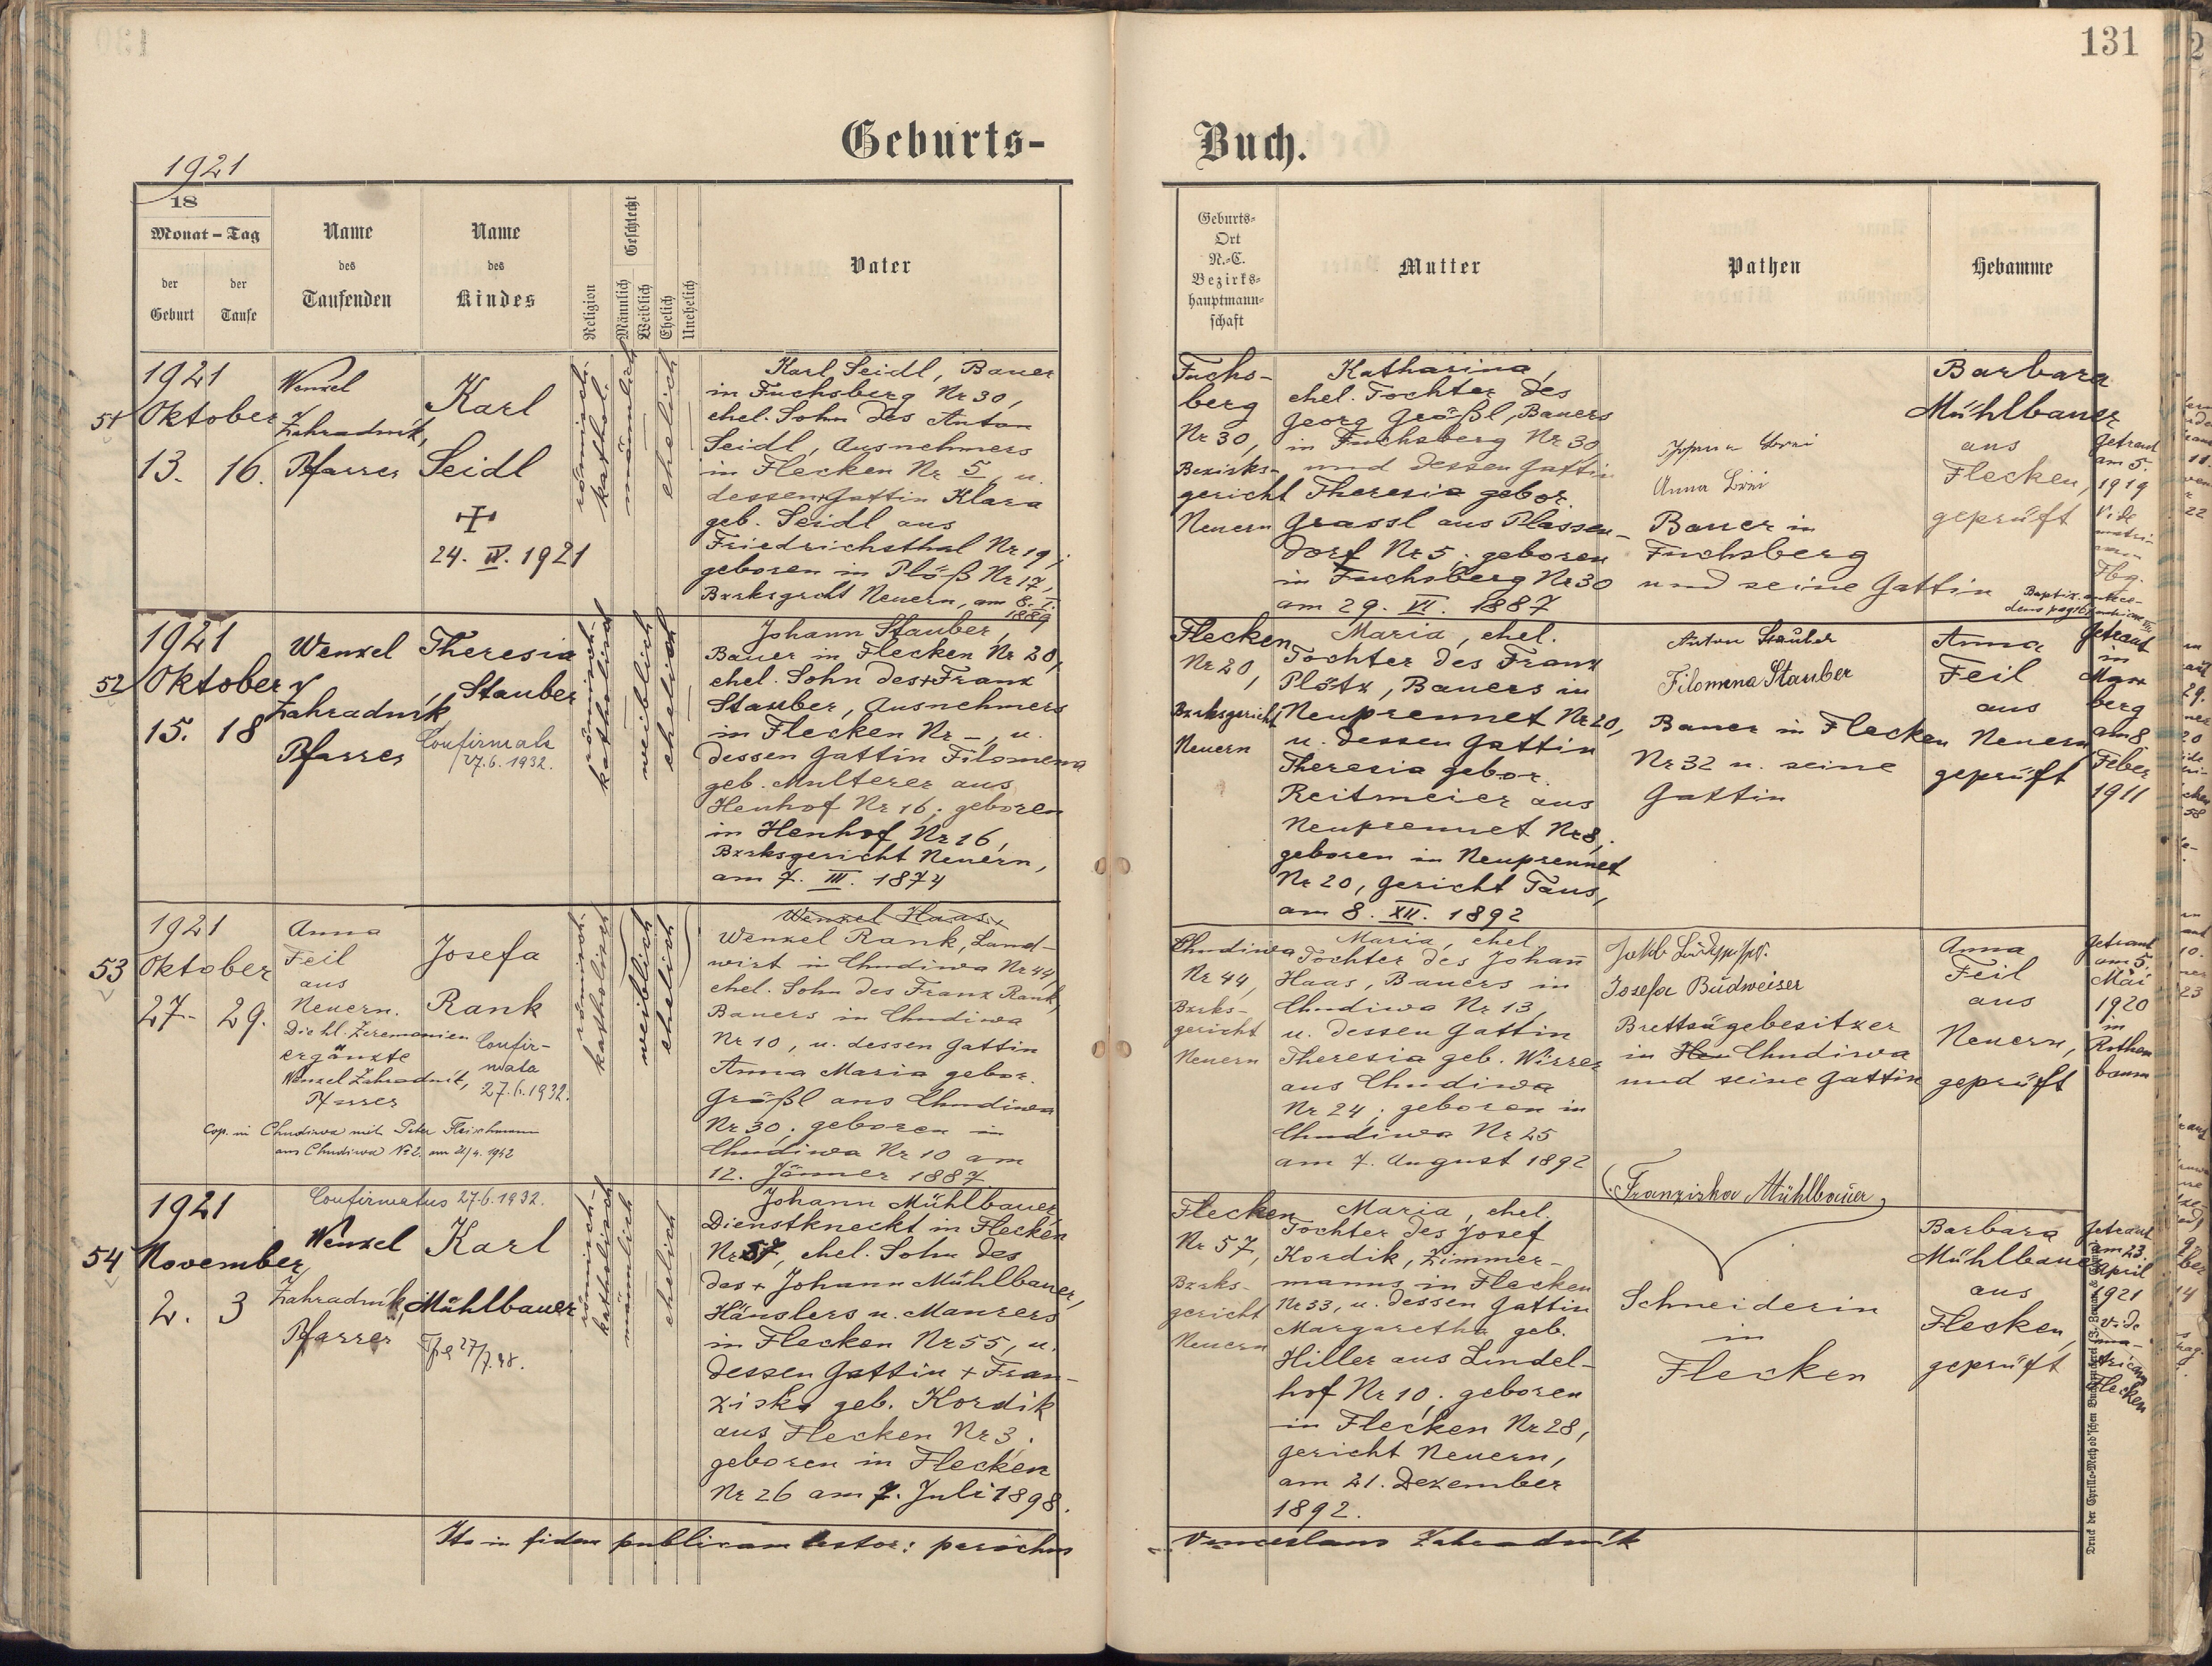 131
Geburts-
Buch.
1921
18
Monat – Tag
der Geburt
der Taufe
Name des Taufenden
Name des Kindes
Religion
Geschlecht
Männlich
Weiblich
Ehelich
Unehelich
Vater
Geburts-
Ort
N.-C.
Bezirks-
hauptmann-
schaft
Mutter
Pathen
Hebamme
51
1921
Oktober
13. 16.
Wenzel
Zahradník,
Pfarrer
Karl
Seidl
24. IV. 1921
römisch-
kathol.
männlich
ehelich
Karl Seidl, Bauer
in Fuchsberg Nr 30,
ehel. Sohn des Anton
Seidl, Ausnehmers
in Flecken Nr 5, u.
dessen + Gattin Klara
geb. Seidl aus
Friedrichsthal Nr 19;
geboren in Plöß Nr 17,
Bzrksgrcht Neuern, am 8. I.
1889
Fuchs-
berg
Nr 30,
Bezirks-
gericht
Neuern
Katharina,
ehel. Tochter des
Georg Größl, Bauers
in Fuchsberg Nr 30
und dessen Gattin
Theresia gebor.
Grassl aus Plassen-
dorf Nr 5; geboren
in Fuchsberg Nr 30
am 29. VI. 1887
Anna
Bauer in
Fuchsberg
und seine Gattin
Barbara
Mühlbauer
aus
Flecken,
geprüft
Getraut
am 5.
1919
Vide
matri-
Fbg.
52
1921
Oktober
15. 18
Wenzel
Zahradník
Pfarrer
Theresia
Stauber
Confirmata
27.6.1932.
römisch-
katholisch
weiblich
ehelich
Johann Stauber,
Bauer in Flecken Nr 20,
ehel. Sohn des + Franz
Stauber, Ausnehmers
in Flecken Nr –, u.
dessen Gattin Filomena
geb. Multerer aus
Henhof Nr 16; geboren
in Henhof Nr 16,
Bzrksgericht Neuern,
am 7. III. 1874
Flecken
Nr 20,
Bzrksgericht
Neuern
Maria, ehel.
Tochter des Franz
Plötz, Bauers in
Neuprennet Nr 20,
u. dessen Gattin
Theresia gebor.
Reitmeier aus
Neuprennet Nr 8;
geboren in Neuprennet
Nr 20, Gericht Taus,
am 8. XII. 1892
Anton Stauber
Filomena Stauber
Bauer in Flecken
Nr 32 u. seine
Gattin
Anna
Feil
aus
Neuern
geprüft
Getraut
in
berg
am 8.
Feber
1911
53
1921
Oktober
27. 29.
Anna
Feil
aus
Neuern.
Die hl. Zeremonien
ergänzte
Wenzel Zahradník,
Pfarrer
Josefa
Rank
Confir-
mata
27.6.1932.
Cop. in Chudiwa mit Peter Fleischmann
aus Chudiwa No 2. am 21/4. 1942
römisch-
katholisch
weiblich
ehelich
Wenzel Haas,
Wenzel Rank, Land-
wirt in Chudiwa Nr 44,
ehel. Sohn des Franz Rank,
Bauers in Chudiwa
Nr 10, u. dessen Gattin
Anna Maria gebor.
Größl aus Chudiwa
Nr 30; geboren in
Chudiwa Nr 10 am
12. Jänner 1887
Chudiwa
Nr 44,
Bzrks-
gericht
Neuern
Maria, ehel.
Tochter des Johann
Haas, Bauers in
Chudiwa Nr 13,
u. dessen Gattin
Theresia geb. Wirrer
aus Chudiwa
Nr 24; geboren in
Chudiwa Nr 25
am 7. August 1892
Josefa Budweiser
Brettsägebesitzer
in Chudiwa
und seine Gattin
Anna
Feil
aus
Neuern,
geprüft
Getraut
am 5.
Mai
1920
in
Rothen
baum
54
1921
November
2. 3
Confirmatus 27.6.1932.
Wenzel
Zahradník,
Pfarrer
Karl
Mühlbauer
römisch-
katholisch
männlich
ehelich
Johann Mühlbauer
Dienstknecht in Flecken
Nr 57, ehel. Sohn des
des + Johann Mühlbauer,
Häuslers u. Maurers
in Flecken Nr 55, u.
dessen Gattin + Fran-
ziska geb. Kordik
aus Flecken Nr 3;
geboren in Flecken
Nr 26 am 7. Juli 1898.
Flecken
Nr 57,
Bzrks-
gericht
Neuern
Maria, ehel.
Tochter des Josef
Kordik, Zimmer-
manns in Flecken
Nr 33, u. dessen Gattin
Margaretha geb.
Hiller aus Lindel-
hof Nr 10; geboren
in Flecken Nr 28,
Gericht Neuern,
am 21. Dezember
1892.
Franziska Mühlbauer
Schneiderin
in
Flecken
Barbara
Mühlbauer
aus
Flecken,
geprüft
Getraut
am 23.
April
1921
Vide
ma-
tricam
Flecken
Ita in fidem publicam testor: parochus
Venceslaus Zahradník